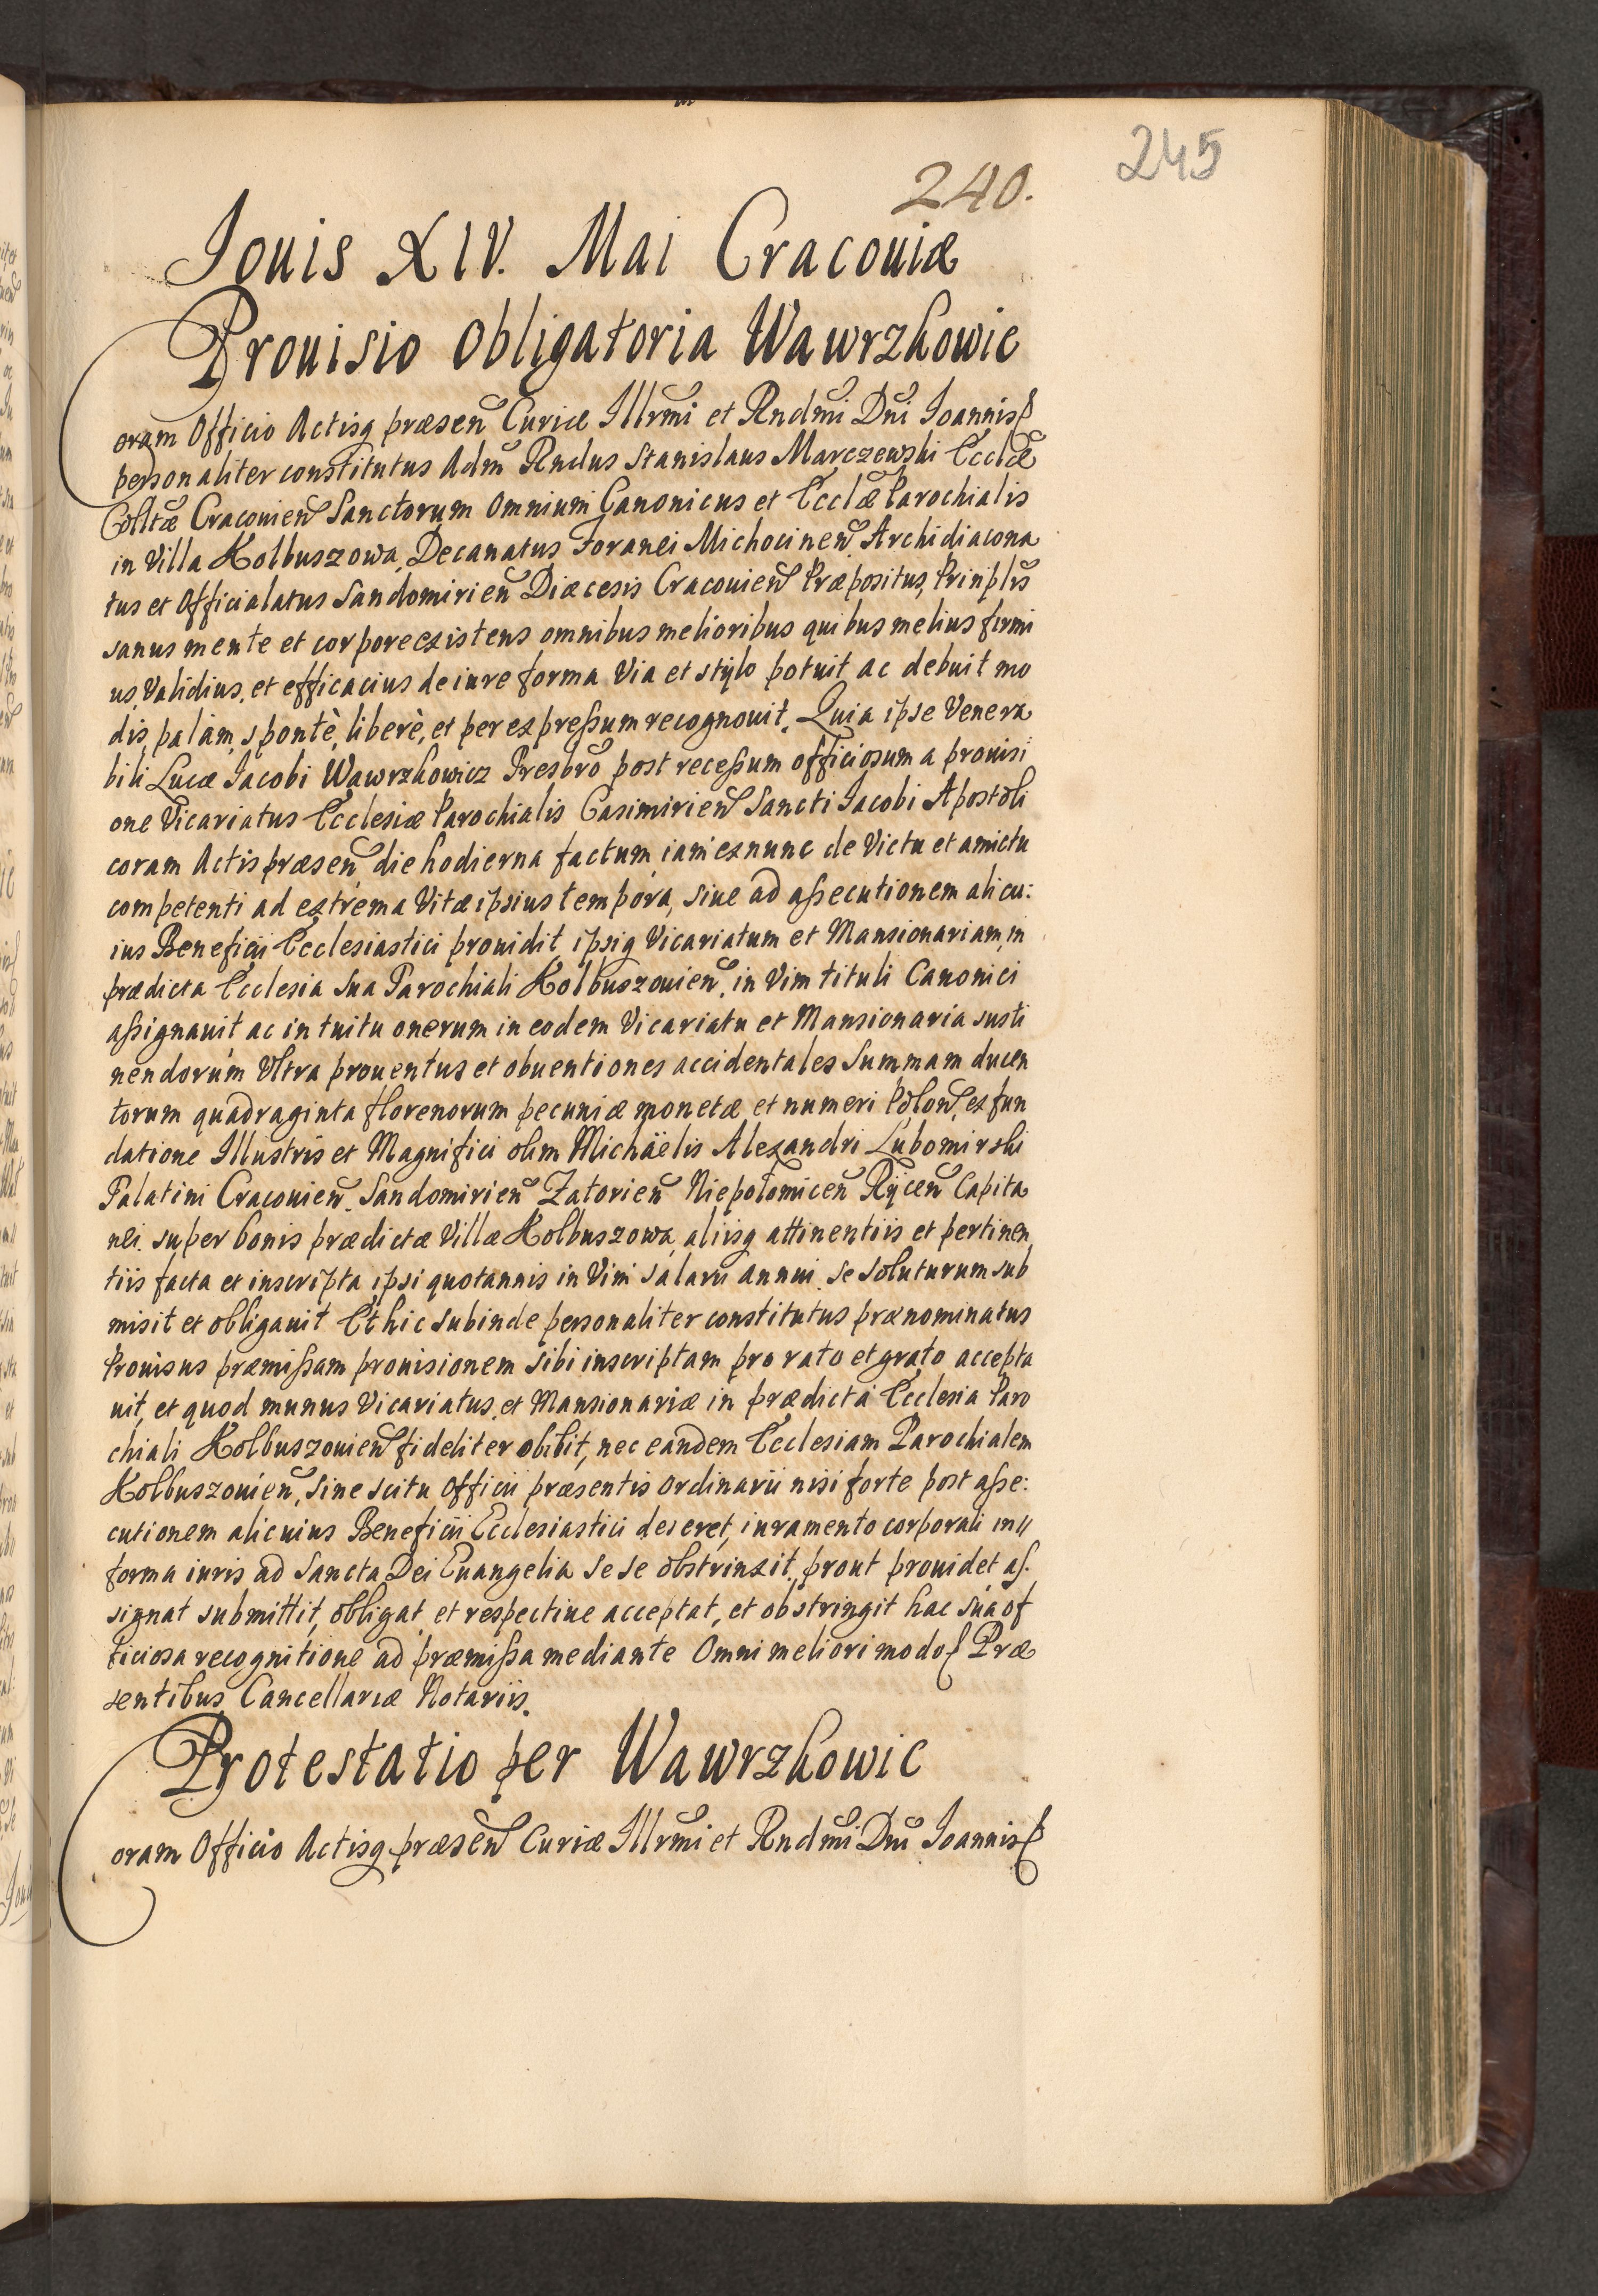 245
240.
Iouis XIV. Mai Cracouiæ
Prouisio Obligatoria Wawrzkowic
Coram Officio Actisq præsen Curiæ Illrmi et Rndmi Dni Ioannis
personaliter constitutus Adm Rndus Stanislaus Marczewski Ecclæ
Colltæ Cracouien Sanctorum Omnium Canonicus et Ecclæ Parochialis
in Villa Kolbuszowa, Decanatus Foranei Michocinen Archidiacona
tus et Officialatus Sandomirien Diæcesis Cracouien Præpositus, Prinplis
sanus mente et corpore existens omnibus melioribus quibus melius firmi
us, Validius, et efficacius de iure forma Via et stylo potuit ac debuit mo
dis, palàm, spontè, liberè, et per expreßum recognouit. Quia ipse Venera
bili Lucæ Iacobi Wawrzkowicz Presbro post receßum officiosum a prouisi
one Vicariatus Ecclesiæ Parochialis Casimirien Sancti Iacobi Apostoli
coram Actis præsen die hodierna factum, iam ex nunc de Victu et amictu
competenti ad extrema Vitæ ipsius tempora, siue ad aßecutionem alicu:
ius Beneficii Ecclesiastici prouidit, ipsiq Vicariatum et Mansionariam, in
prædicta Ecclesia sua Parochiali Kolbuszouien, in Vim tituli Canonici
aßignauit ac intuitu onerum in eodem Vicariatu et Mansionaria susti
nendorum Vltra prouentus et obuentiones accidentales Summam ducen
torum quadraginta florenorum pecuniæ monetæ et numeri Polon, ex fun
datione Illustris et Magnifici olim Michäelis Alexandri Lubomirski
Palatini Cracouien. Sandomirien Zatorien Niepolomicen Rÿcen Capita
nei super bonis prædictæ Villæ Kolbuszowa, aliisq attinentiis et pertinen
tiis facta et inscripta, ipsi quotannis in Vim salarii annui se soluturum sub
misit et obligauit Et hic subinde personaliter constitutus prænominatus
Prouisus præmißam prouisionem sibi inscriptam pro rato et grato accepta
uit, et quod munus Vicariatus, et Mansionariæ in prædicta Ecclesia Paro
chiali Kolbuszouien fideliter obibit, nec eandem Ecclesiam Parochialem
Kolbuszouien, sine scitu Officii præsentis Ordinarii nisi forte post aße:
cutionem alicuius Beneficii Ecclesiastici deseret, iuramento corporali in
forma iuris ad Sancta Dei Euangelia sese obstrinxit, prout prouidet as
signat submittit, obligat, et respectiue acceptat, et obstringit hac sua of
ficiosa recognitione ad præmißa mediante Omni meliori modo Præ
sentibus Cancellariæ Notariis.
Protestatio per Wawrzkowic
Coram Officio Actisq præsen Curiæ Illrmi et Rndmi Dni Ioannis